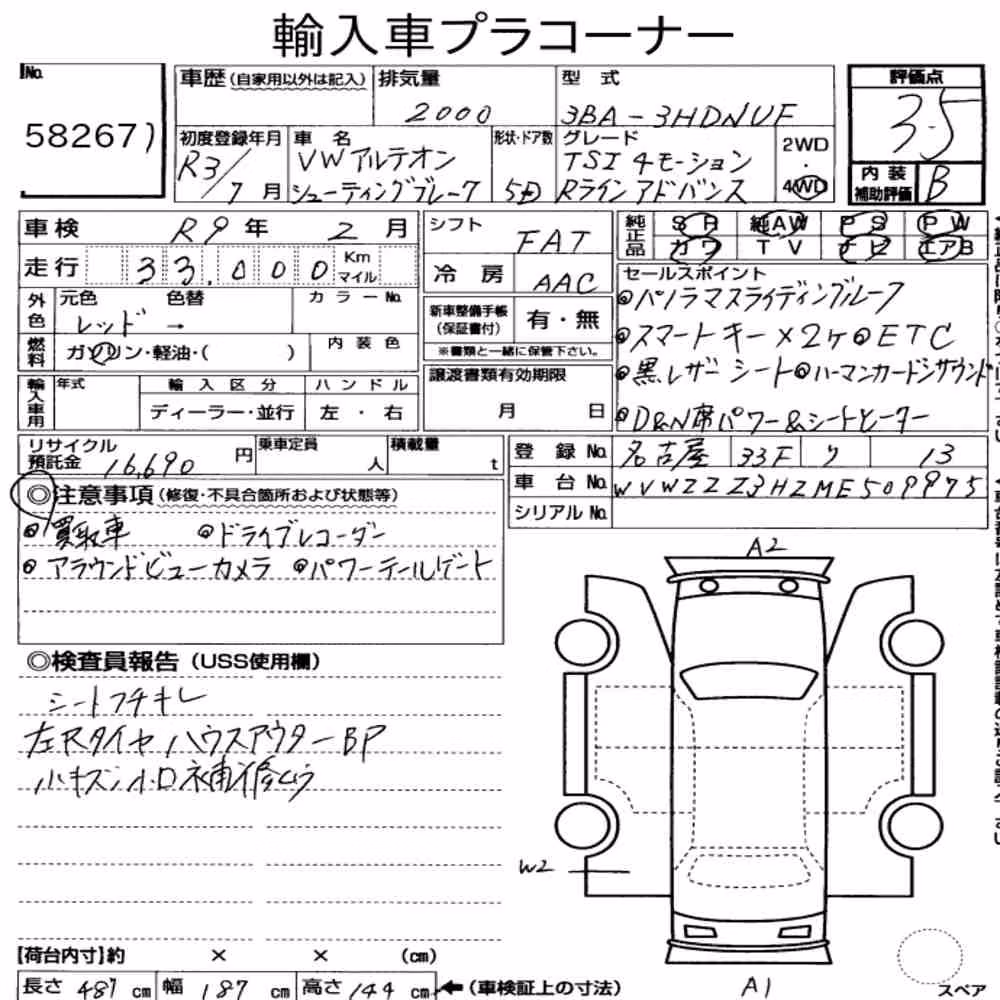 輸入車プラコーナー
No.
58267
車歴(自家用以外は記入)
排気量
2000
型 式
3BA-3HDNUF
評価点
3.5
内装補助評価
B
初度登録年月
R3/7月
車 名
VWアルテオン
シューティングブレーク
形状・ドア数
5D
グレード
TSI 4モーション
Rライン アドバンス
2WD
・
4WD
車検 R9年 2月
走行 33,000 Km マイル
外色 元色 色替 カラーNo.
レッド →
燃料 ガソリン・軽油・( )
内装色
輸入車用 年式 輸入区分 ハンドル
ディーラー・並行 左・右
シフト FAT
冷房 AAC
新車整備手帳(保証書付) 有・無
※書類と一緒に保管下さい。
譲渡書類有効期限
月 日
純正品 SR 純AW PS PW
カワ TV ナビ エアB
セールスポイント
◎パノラマスライディングルーフ
◎スマートキー×2ケ ◎ETC
◎黒レザーシート ◎ハーマンカードンサウンド
◎D&N席パワー&シートヒーター
リサイクル預託金 16,690円
乗車定員 人
積載量 t
登録No. 名古屋 33F リ 13
車台No. WVWZZZ3HZME509975
シリアルNo.
◎注意事項(修復・不具合箇所および状態等)
◎買取車 ◎ドライブレコーダー
◎アラウンドビューカメラ ◎パワーテールゲート
◎検査員報告(USS使用欄)
シートフチキレ
左Rタイヤハウスアウター BP
小キズ 小凹 補修ムラ
A2
W2
A1
スペア
【荷台内寸】約 × × (cm)
長さ 487 cm 幅 187 cm 高さ 144 cm ←(車検証上の寸法)